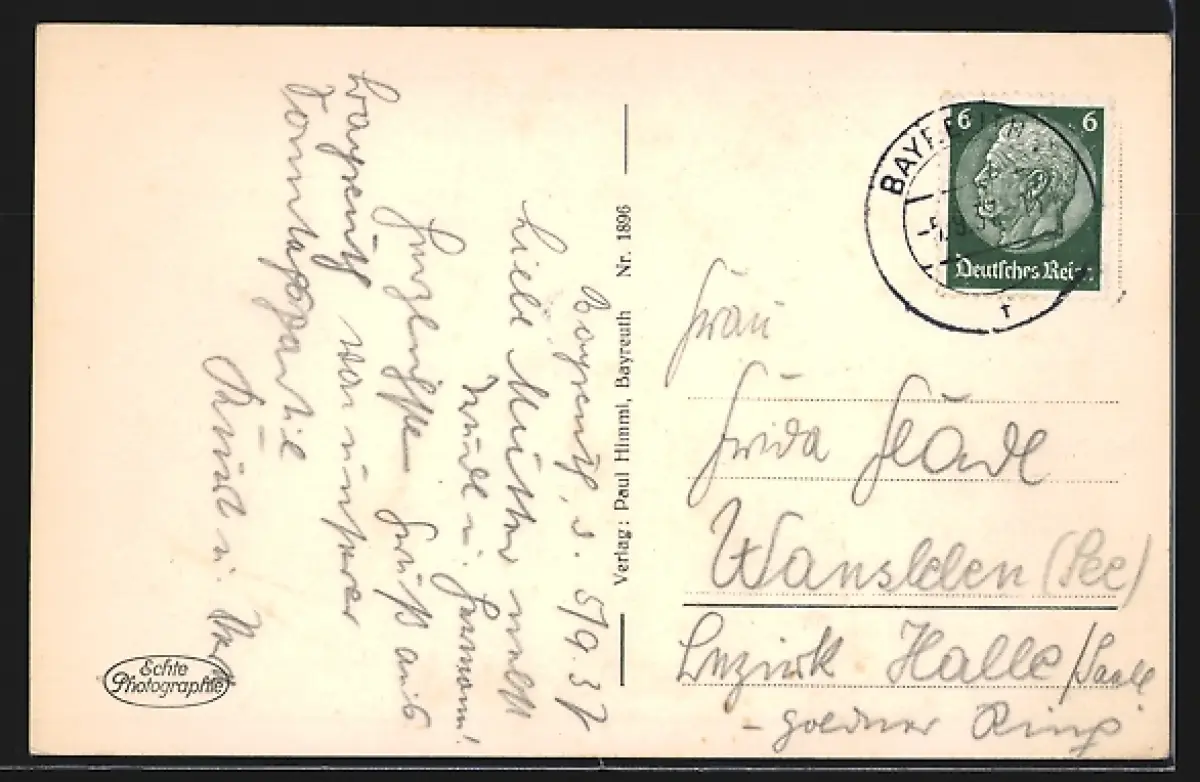 Bayreuth, d. 5/9.37
Liebe Mutter nebst
Trude u. Hermann!
Herzlichste Grüße aus
Bayreuth von unserer
Sonntagspartie
u.
Echte
Photographie
Verlag: Paul Himml, Bayreuth Nr. 1896
BAYREUTH
6 6
Deutsches Reich
Frau
Frida
Wansleben (See)
Bezirk Halle/Saale
- goldner Ring